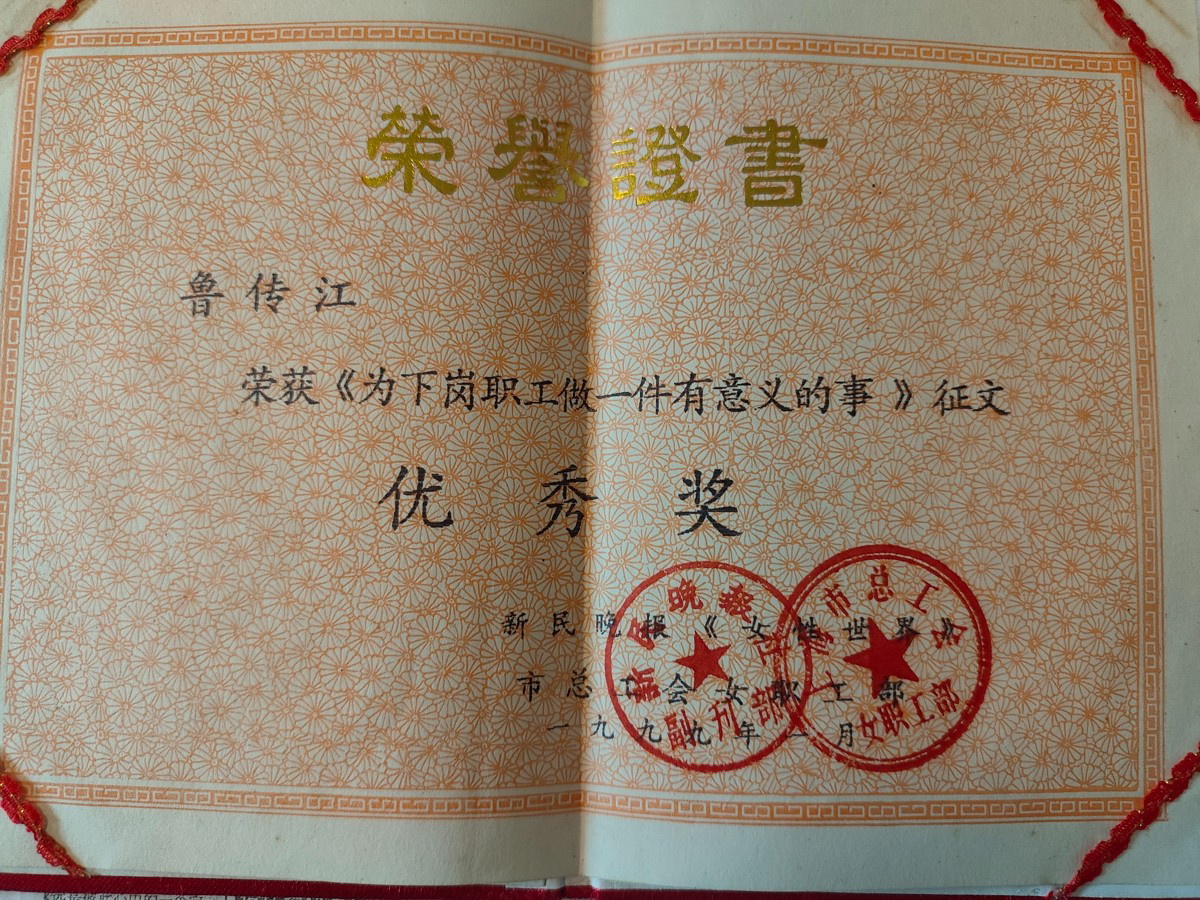 榮譽證書
鲁传江
荣获《为下岗职工做一件有意义的事》征文
优秀奖
新民晚报《女性世界》
市总工会女职工部
一九九九年一月
新民晚报社
副刊部
上海市总工会
女职工部